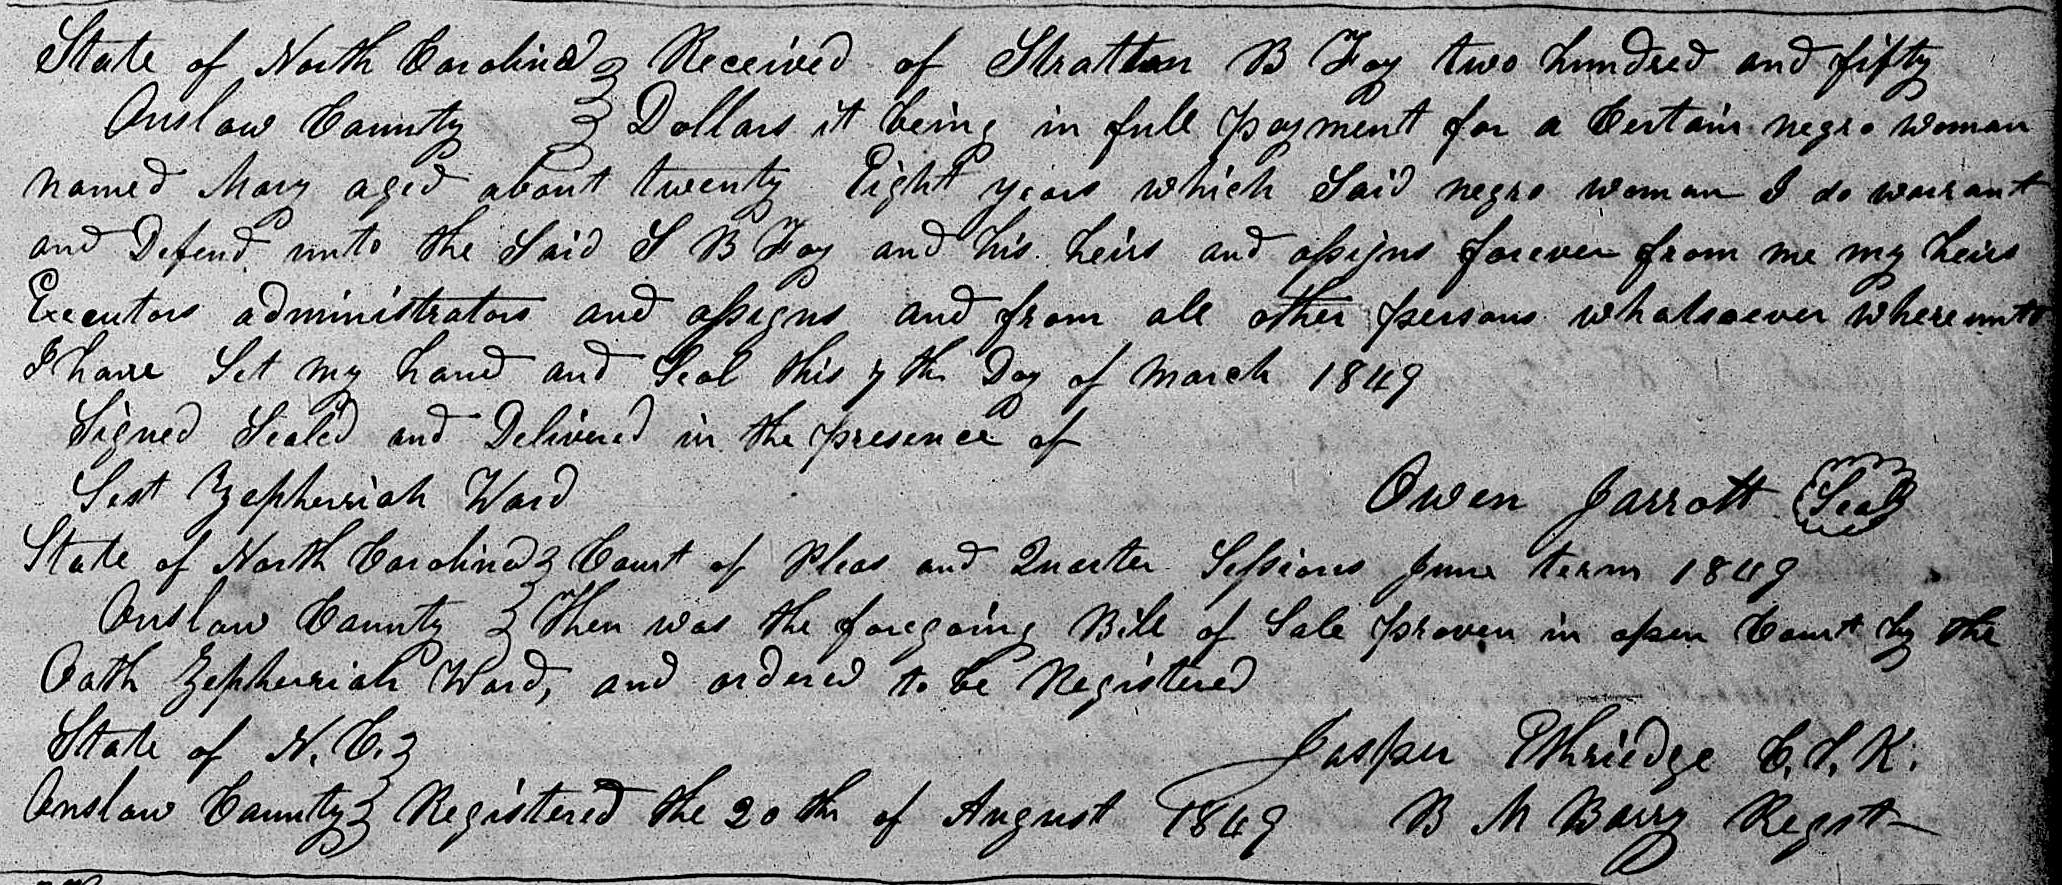 State of North Carolina } Received of Stratton B Foy two hundred and fifty
Onslow County } Dollars it being in full payment for a Certain negro woman
named Mary aged about twenty Eight years which Said negro woman I do warrant
and Defend unto the Said S B Foy and his heirs and assigns forever from me my heirs
Executors administrators and assigns and from all other persons whatsoever where unto
I have Set my hand and Seal this 7th Day of March 1849
Signed Sealed and Delivered in the presence of
Test Zepheniah Ward Owen Jarrott Seal
State of North Carolina } Court of Pleas and Quarter Sessions June term 1849
Onslow County } Then was the foregoing Bill of Sale proven in open Court by the
Oath Zepheniah Ward, and ordered to be Registered
State of N. C. } Jasper Ethriedge C. S. K.
Onslow County } Registered the 20th of August 1849 B M Barry Regst